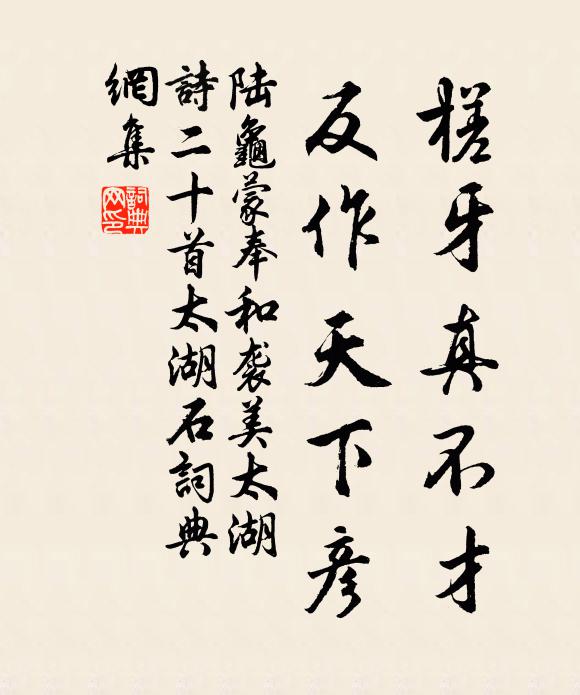 槎牙真不才
反作天下彥
陆龜蒙奉和袭美太湖
詩二十首太湖石詞典
網集
詞典網印